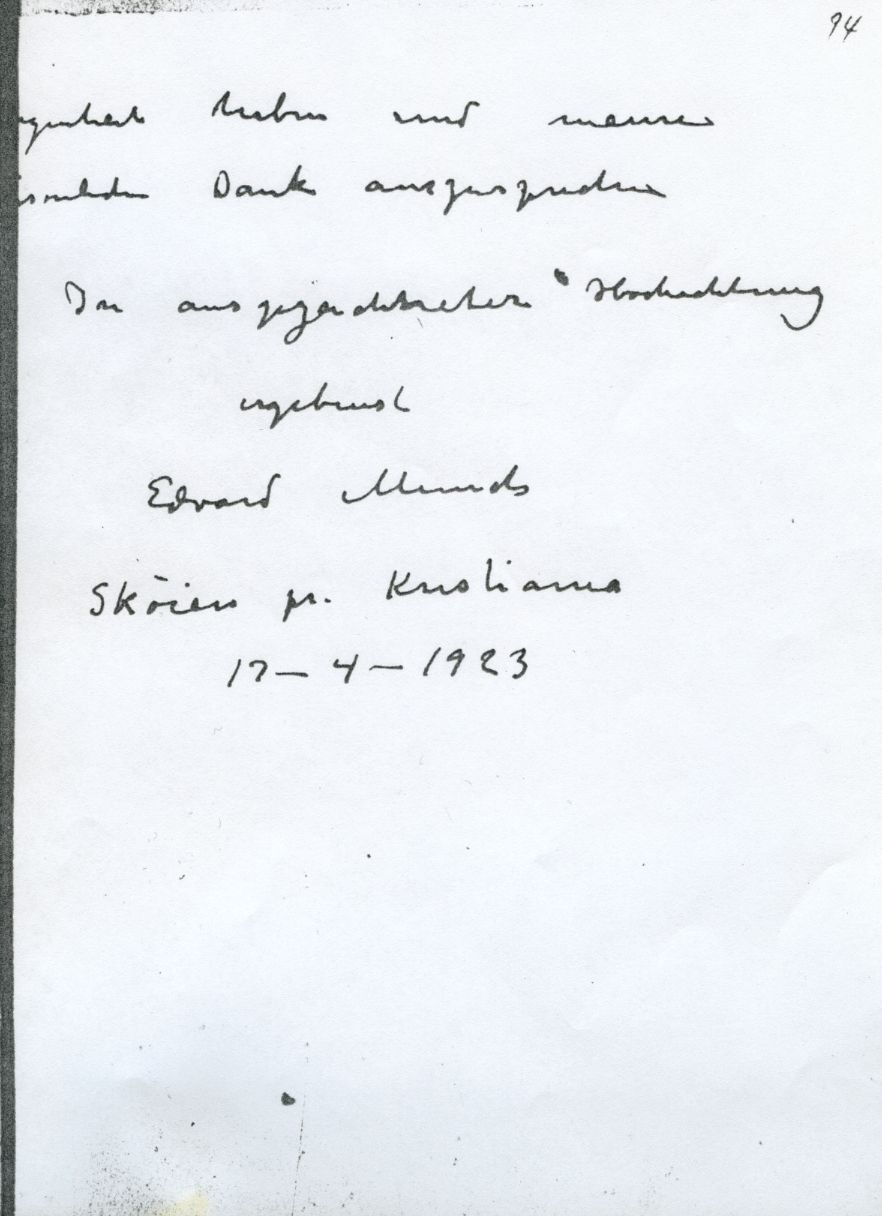 94
genheit haben und meinen
Dank auszusprechen
In ausgezeichneter Hochachtung
ergebenst
Edvard Munch
Sköien pr. Kristiania
17–4–1923